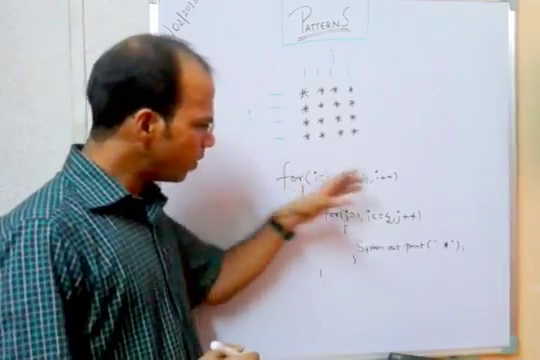 /02/202
PATTERNS
* * * *
* * * *
* * * *
* * * *
for(i= i++)
{
for(j=1, j<=4, j++)
{
System.out.print(" *");
}